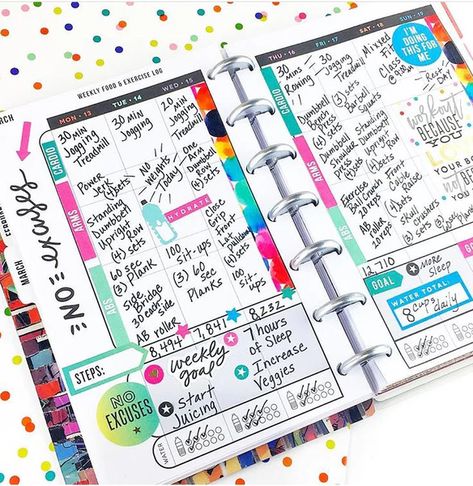 WEEKLY FOOD & EXERCISE LOG
MARCH
MON • 13
TUE • 14
WED • 15
CARDIO
30 min
Jogging
Treadmill
30 min
Jogging
20 min
Jogging
Treadmill
ARMS
Power
Jerk
(4) sets
Standing
Dumbbell
Upright
Row
(4) sets
NO
weights
Today
HYDRATE
One
Arm
Dumbbell
Row
(4) sets
Close
Grip
Front
Lat
Pulldown
(4) sets
ABS
60 sec
(3) Plank
Side
Bridge
30 each
Side
AB roller
(3) sets
100
Sit-ups
(3) 60 sec
Planks
100
Sit-ups
MARCH
NO excuses
STEPS:
8,494
7,841
8,232
NO
EXCUSES
weekly
goal
Start
Juicing
7 hours
of Sleep
Increase
Veggies
WATER
THU • 16
FRI • 17
SAT • 18
SUN • 19
CARDIO
30 min
Rowing
30 min
Jogging
Treadmill
Mixed
Fit
Class
@ 9:00am
I'M
DOING
THIS FOR
ME
Rest
Day
ARMS
Dumbbell
Bench
Press
(4) sets
Dumbbell
Squats
Standing
Dumbbell
Upright
(4) sets
workout
BECAUSE
YOU
ABS
Exercise
Ball
AB
roller
Front
Cable
Raise
Skull
Crushers
12,710
GOAL
more
Sleep
WATER TOTAL:
8 cups daily